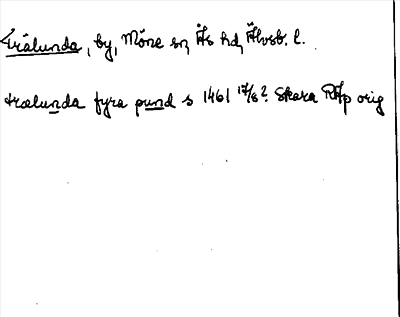 Trälunda, by, Möne sn, Ås hd, Älvsb. l.
trælunda fyra pund s 1461 17/8? Skara RAp orig